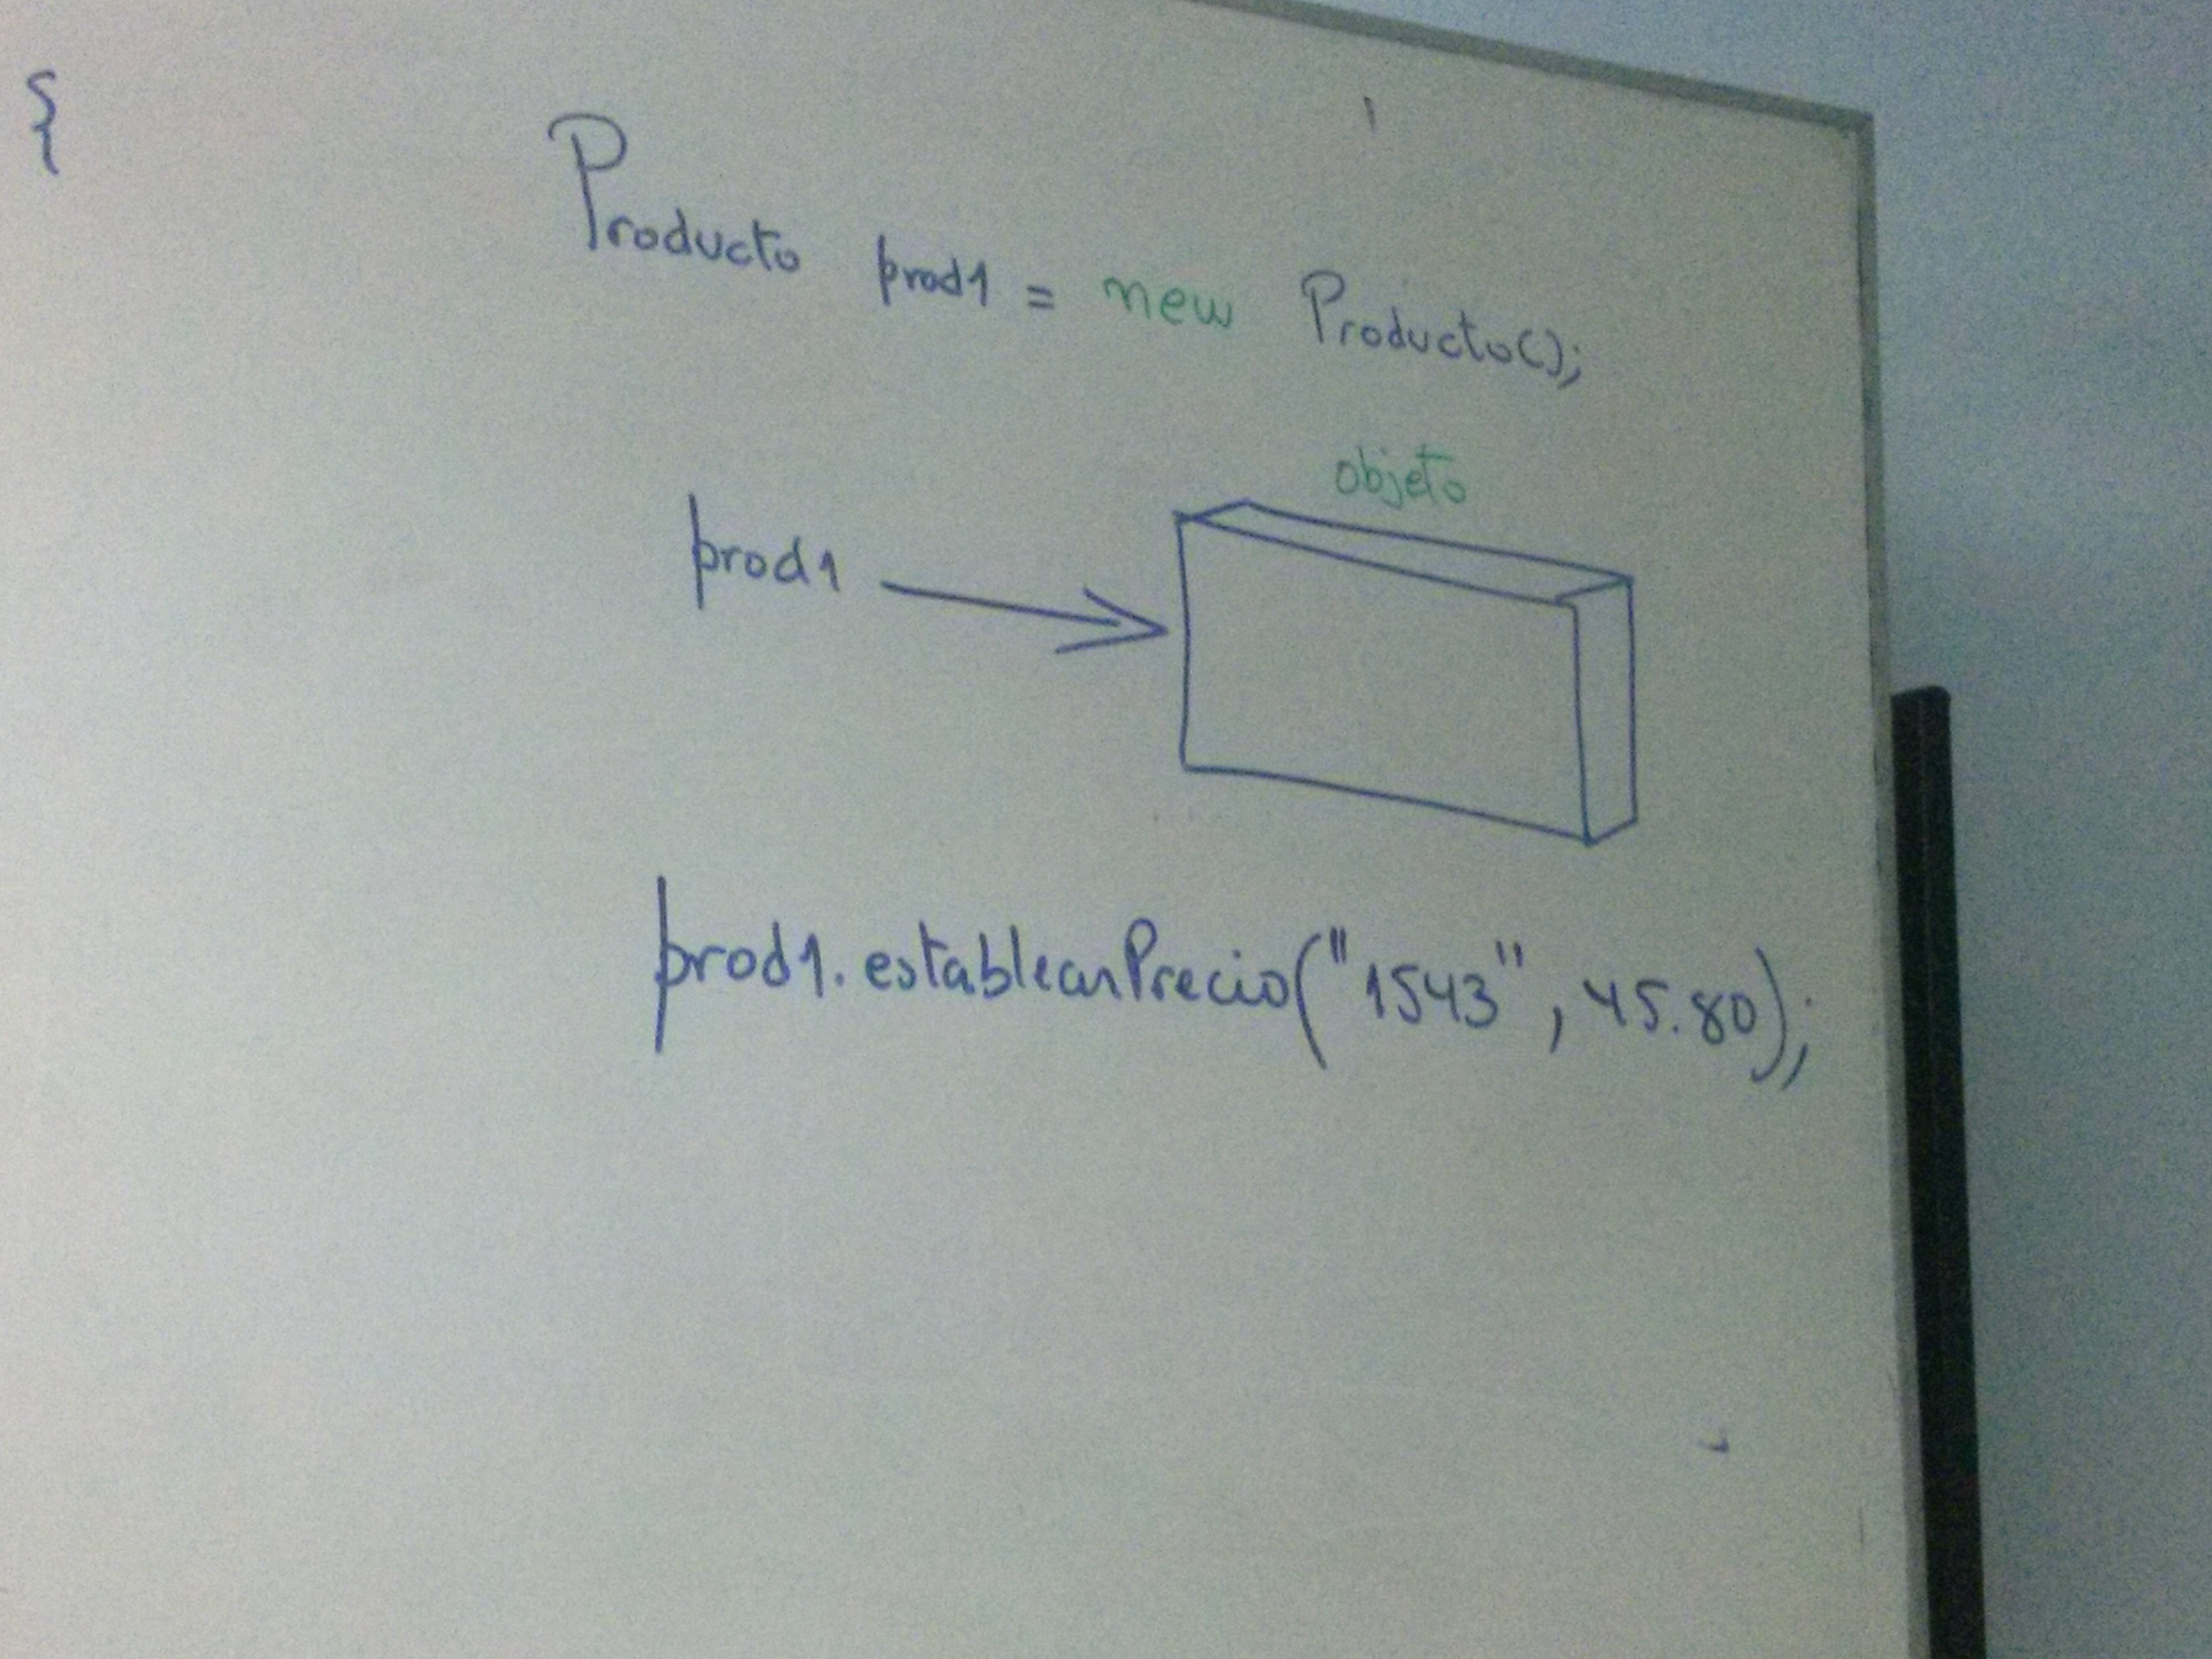 {
Producto prod1 = new Producto();
objeto
prod1
prod1.establecerPrecio("1543", 45.80);